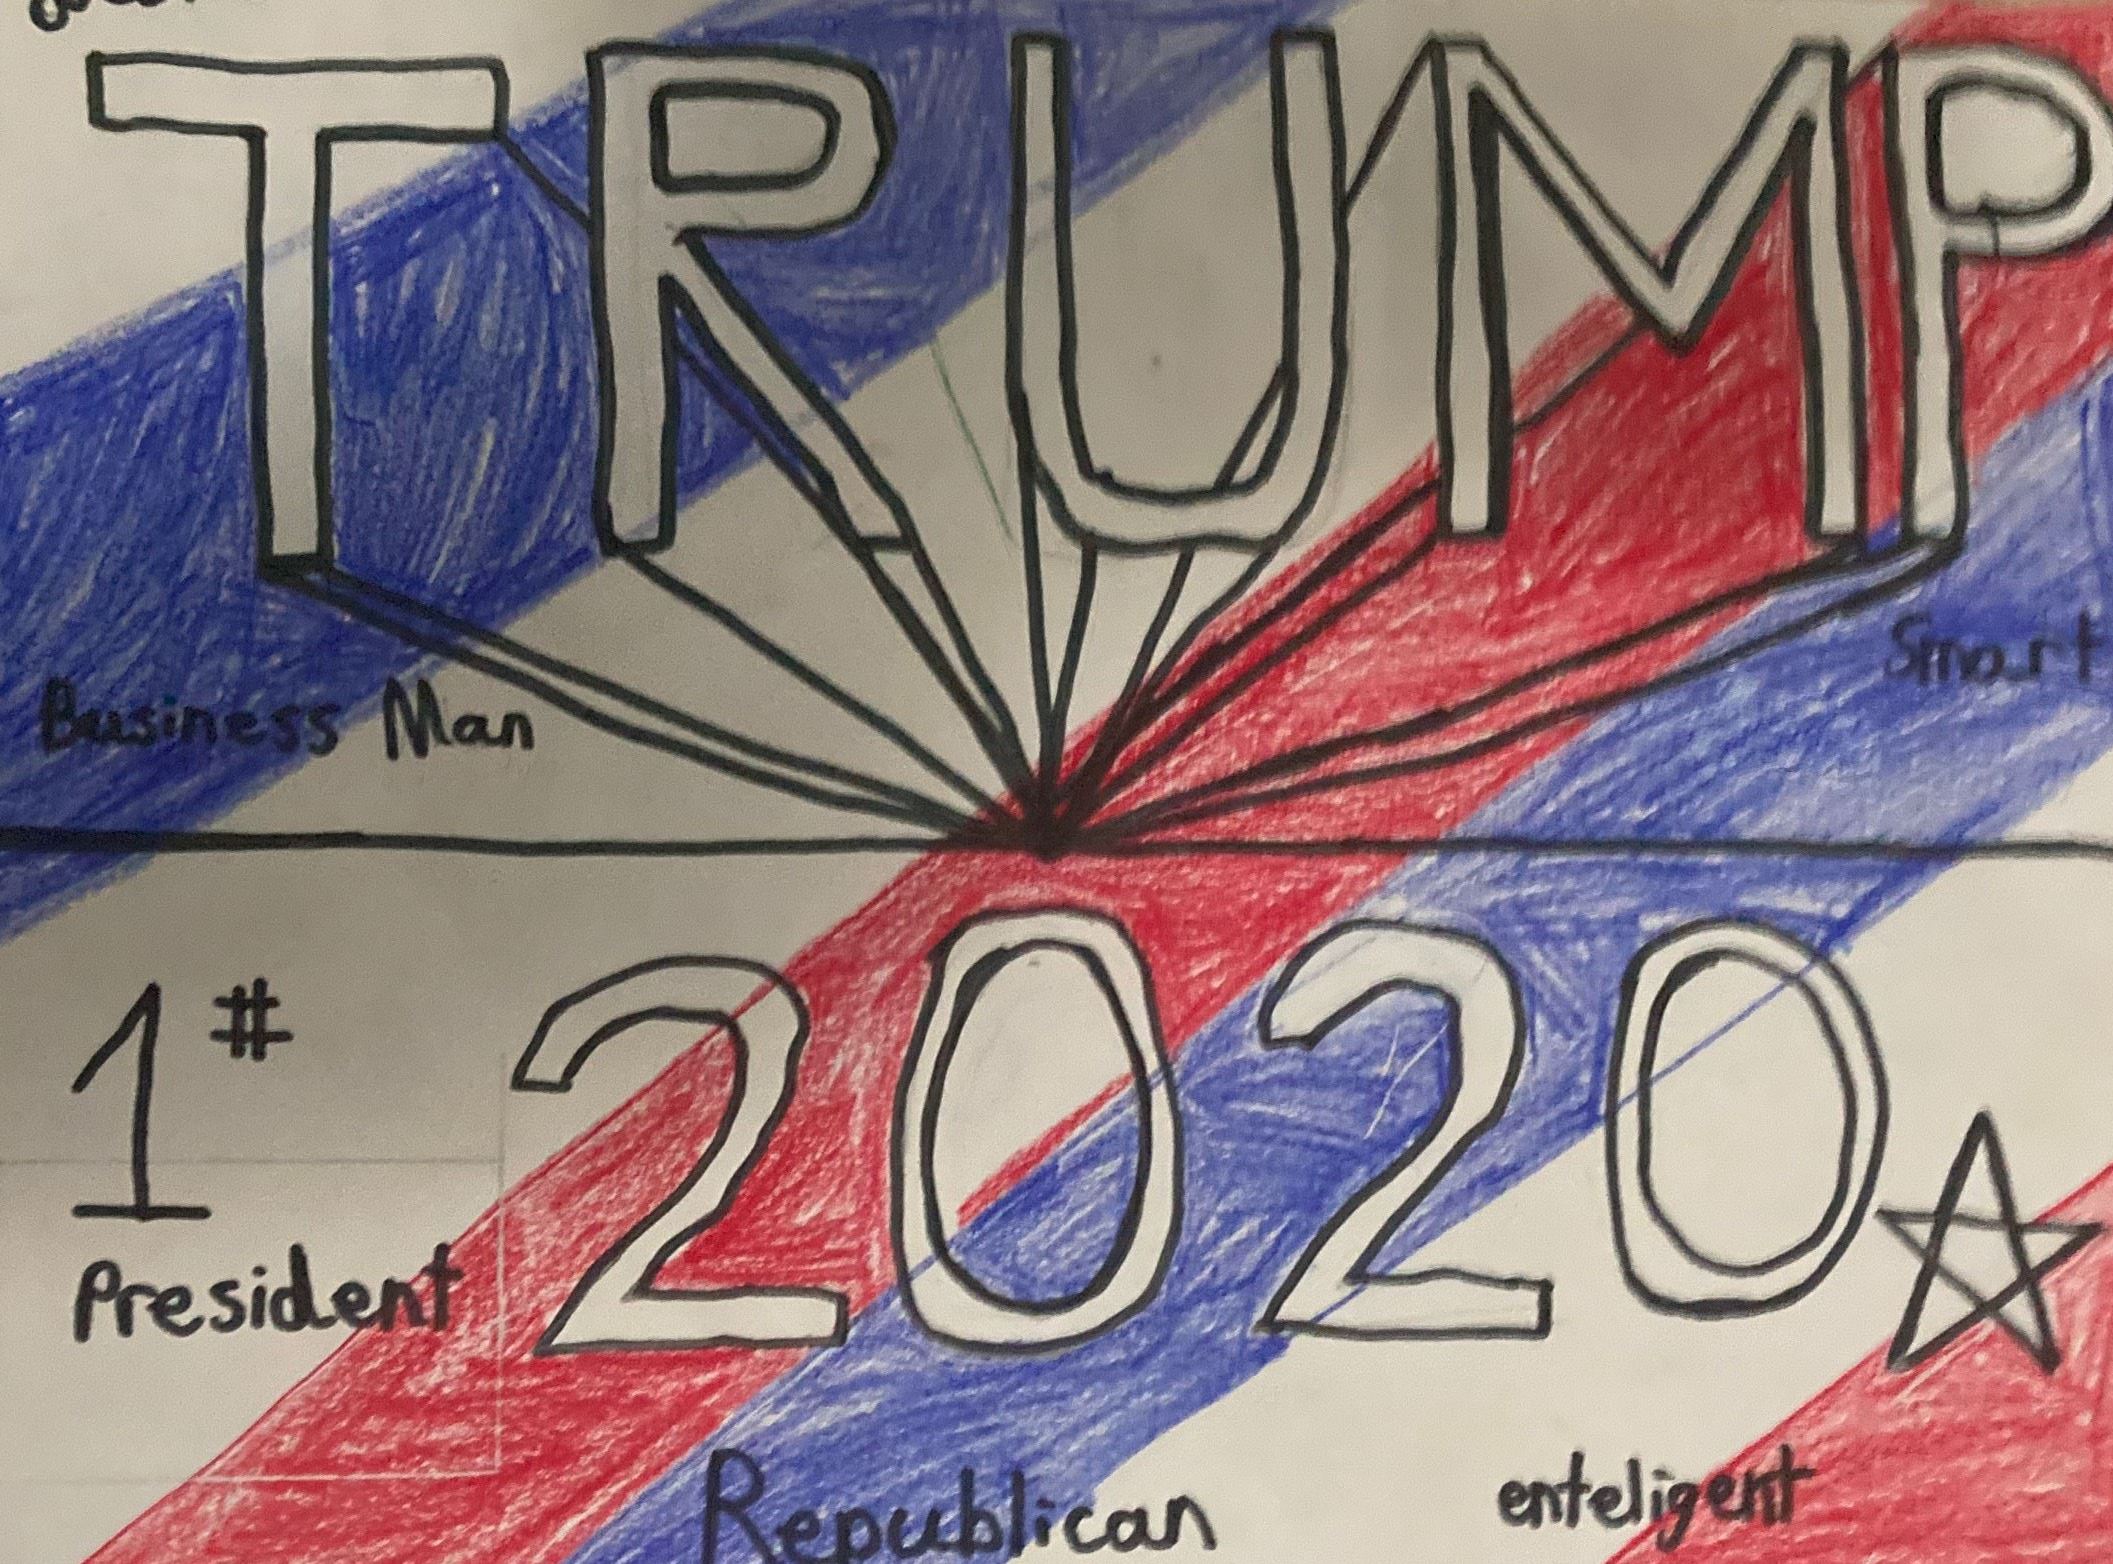 TRUMP
Smart
Business Man
1# 2020
President
Republican enteligent